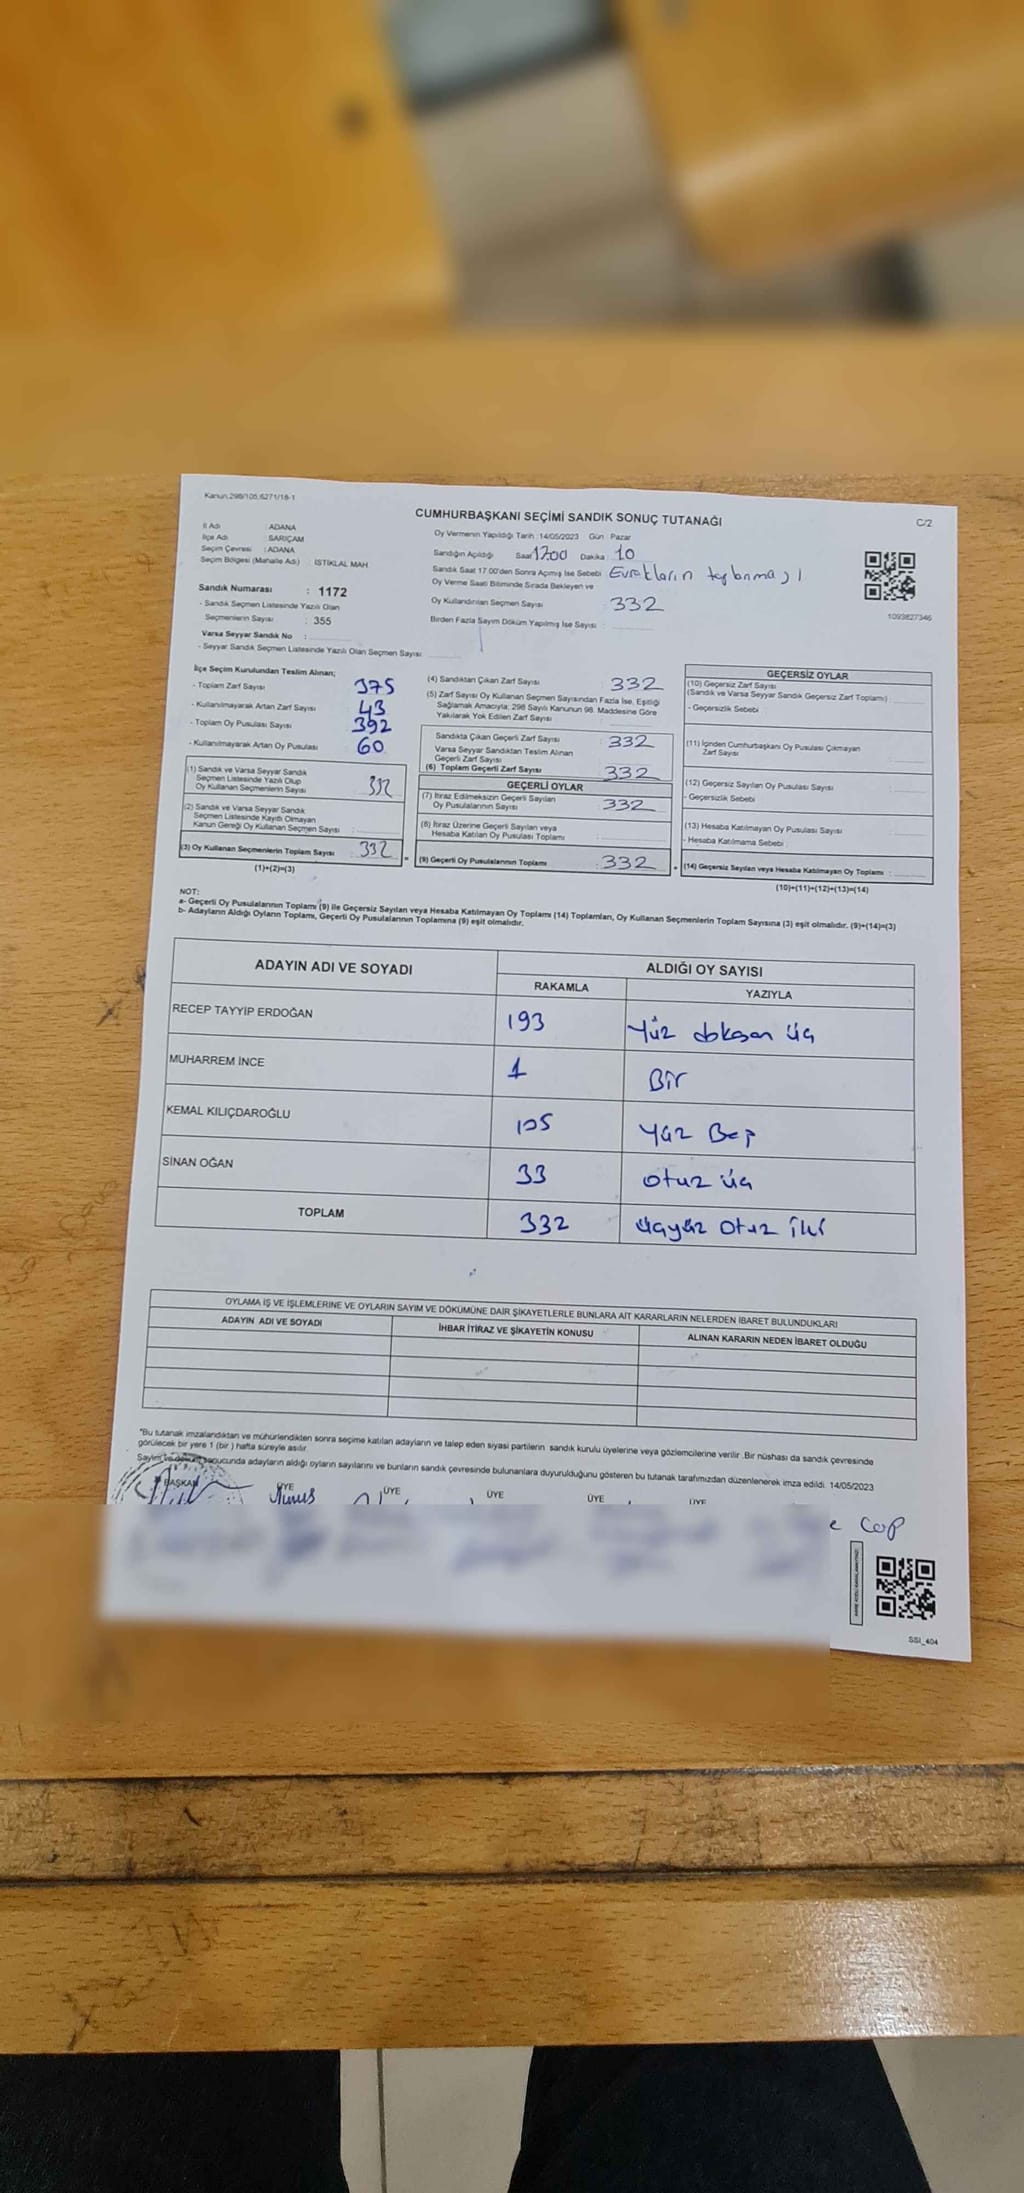 Kanun.298/105,6271/18-1
CUMHURBAŞKANI SEÇİMİ SANDIK SONUÇ TUTANAĞI
C/2
İl Adı : ADANA
İlçe Adı : SARIÇAM
Seçim Çevresi : ADANA
Seçim Bölgesi (Mahalle Adı) : İSTİKLAL MAH
Sandık Numarası : 1172
- Sandık Seçmen Listesinde Yazılı Olan
Seçmenlerin Sayısı : 355
Varsa Seyyar Sandık No :
- Seyyar Sandık Seçmen Listesinde Yazılı Olan Seçmen Sayısı:
Oy Vermenin Yapıldığı Tarih :14/05/2023 Gün : Pazar
Sandığın Açıldığı Saat 17.00 Dakika : 10
Sandık Saat 17:00'den Sonra Açımış İse Sebebi : Evrakların toplanması
Oy Verme Saati Bitiminde Sırada Bekleyen ve
Oy Kullandırılan Seçmen Sayısı : 332
Birden Fazla Sayım Döküm Yapılmış İse Sayısı :
1093827346
İlçe Seçim Kurulundan Teslim Alınan;
- Toplam Zarf Sayısı 375
- Kullanılmayarak Artan Zarf Sayısı 43
- Toplam Oy Pusulası Sayısı 392
- Kullanılmayarak Artan Oy Pusulası 60
(1) Sandık ve Varsa Seyyar Sandık
Seçmen Listesinde Yazılı Olup
Oy Kullanan Seçmenlerin Sayısı 332
(2) Sandık ve Varsa Seyyar Sandık
Seçmen Listesinde Kayıtlı Olmayan
Kanun Gereği Oy Kullanan Seçmen Sayısı :
(3) Oy Kullanan Seçmenlerin Toplam Sayısı : 332
(1)+(2)=(3)
(4) Sandıktan Çıkan Zarf Sayısı : 332
(5) Zarf Sayısı Oy Kullanan Seçmen Sayısından Fazla İse, Eşitliği
Sağlamak Amacıyla; 298 Sayılı Kanunun 98. Maddesine Göre
Yakılarak Yok Edilen Zarf Sayısı
Sandıkta Çıkan Geçerli Zarf Sayısı : 332
Varsa Seyyar Sandıktan Teslim Alınan
Geçerli Zarf Sayısı
(6) Toplam Geçerli Zarf Sayısı : 332
GEÇERLİ OYLAR
(7) İtiraz Edilmeksizin Geçerli Sayılan
Oy Pusulalarının Sayısı : 332
(8) İtiraz Üzerine Geçerli Sayılan veya
Hesaba Katılan Oy Pusulası Toplamı :
= (9) Geçerli Oy Pusulalarının Toplamı : 332
GEÇERSİZ OYLAR
(10) Geçersiz Zarf Sayısı
(Sandık ve Varsa Seyyar Sandık Geçersiz Zarf Toplamı) :
- Geçersizlik Sebebi :
(11) İçinden Cumhurbaşkanı Oy Pusulası Çıkmayan
Zarf Sayısı
(12) Geçersiz Sayılan Oy Pusulası Sayısı :
- Geçersizlik Sebebi :
(13) Hesaba Katılmayan Oy Pusulası Sayısı :
- Hesaba Katılmama Sebebi :
+ (14) Geçersiz Sayılan veya Hesaba Katılmayan Oy Toplamı :
(10)+(11)+(12)+(13)=(14)
NOT:
a- Geçerli Oy Pusulalarının Toplamı (9) ile Geçersiz Sayılan veya Hesaba Katılmayan Oy Toplamı (14) Toplamları, Oy Kullanan Seçmenlerin Toplam Sayısına (3) eşit olmalıdır. (9)+(14)=(3)
b- Adayların Aldığı Oyların Toplamı, Geçerli Oy Pusulalarının Toplamına (9) eşit olmalıdır.
ADAYIN ADI VE SOYADI
ALDIĞI OY SAYISI
RAKAMLA YAZIYLA
RECEP TAYYİP ERDOĞAN 193 Yüz doksan üç
MUHARREM İNCE 1 Bir
KEMAL KILIÇDAROĞLU 105 Yüz Beş
SİNAN OĞAN 33 otuz üç
TOPLAM 332 üçyüz otuz iki
OYLAMA İŞ VE İŞLEMLERİNE VE OYLARIN SAYIM VE DÖKÜMÜNE DAİR ŞİKAYETLERLE BUNLARA AİT KARARLARIN NELERDEN İBARET BULUNDUKLARI
ADAYIN ADI VE SOYADI İHBAR İTİRAZ VE ŞİKAYETİN KONUSU ALINAN KARARIN NEDEN İBARET OLDUĞU
"Bu tutanak imzalandıktan ve mühürlendikten sonra seçime katılan adayların ve talep eden siyasi partilerin sandık kurulu üyelerine veya gözlemcilerine verilir .Bir nüshası da sandık çevresinde
görülecek bir yere 1 (bir ) hafta süreyle asılır.
Sayım ve döküm sonucunda adayların aldığı oyların sayılarını ve bunların sandık çevresinde bulunanlara duyurulduğunu gösteren bu tutanak tarafımızdan düzenlenerek imza edildi. 14/05/2023
BAŞKAN ÜYE ÜYE ÜYE ÜYE ÜYE
SSI_404